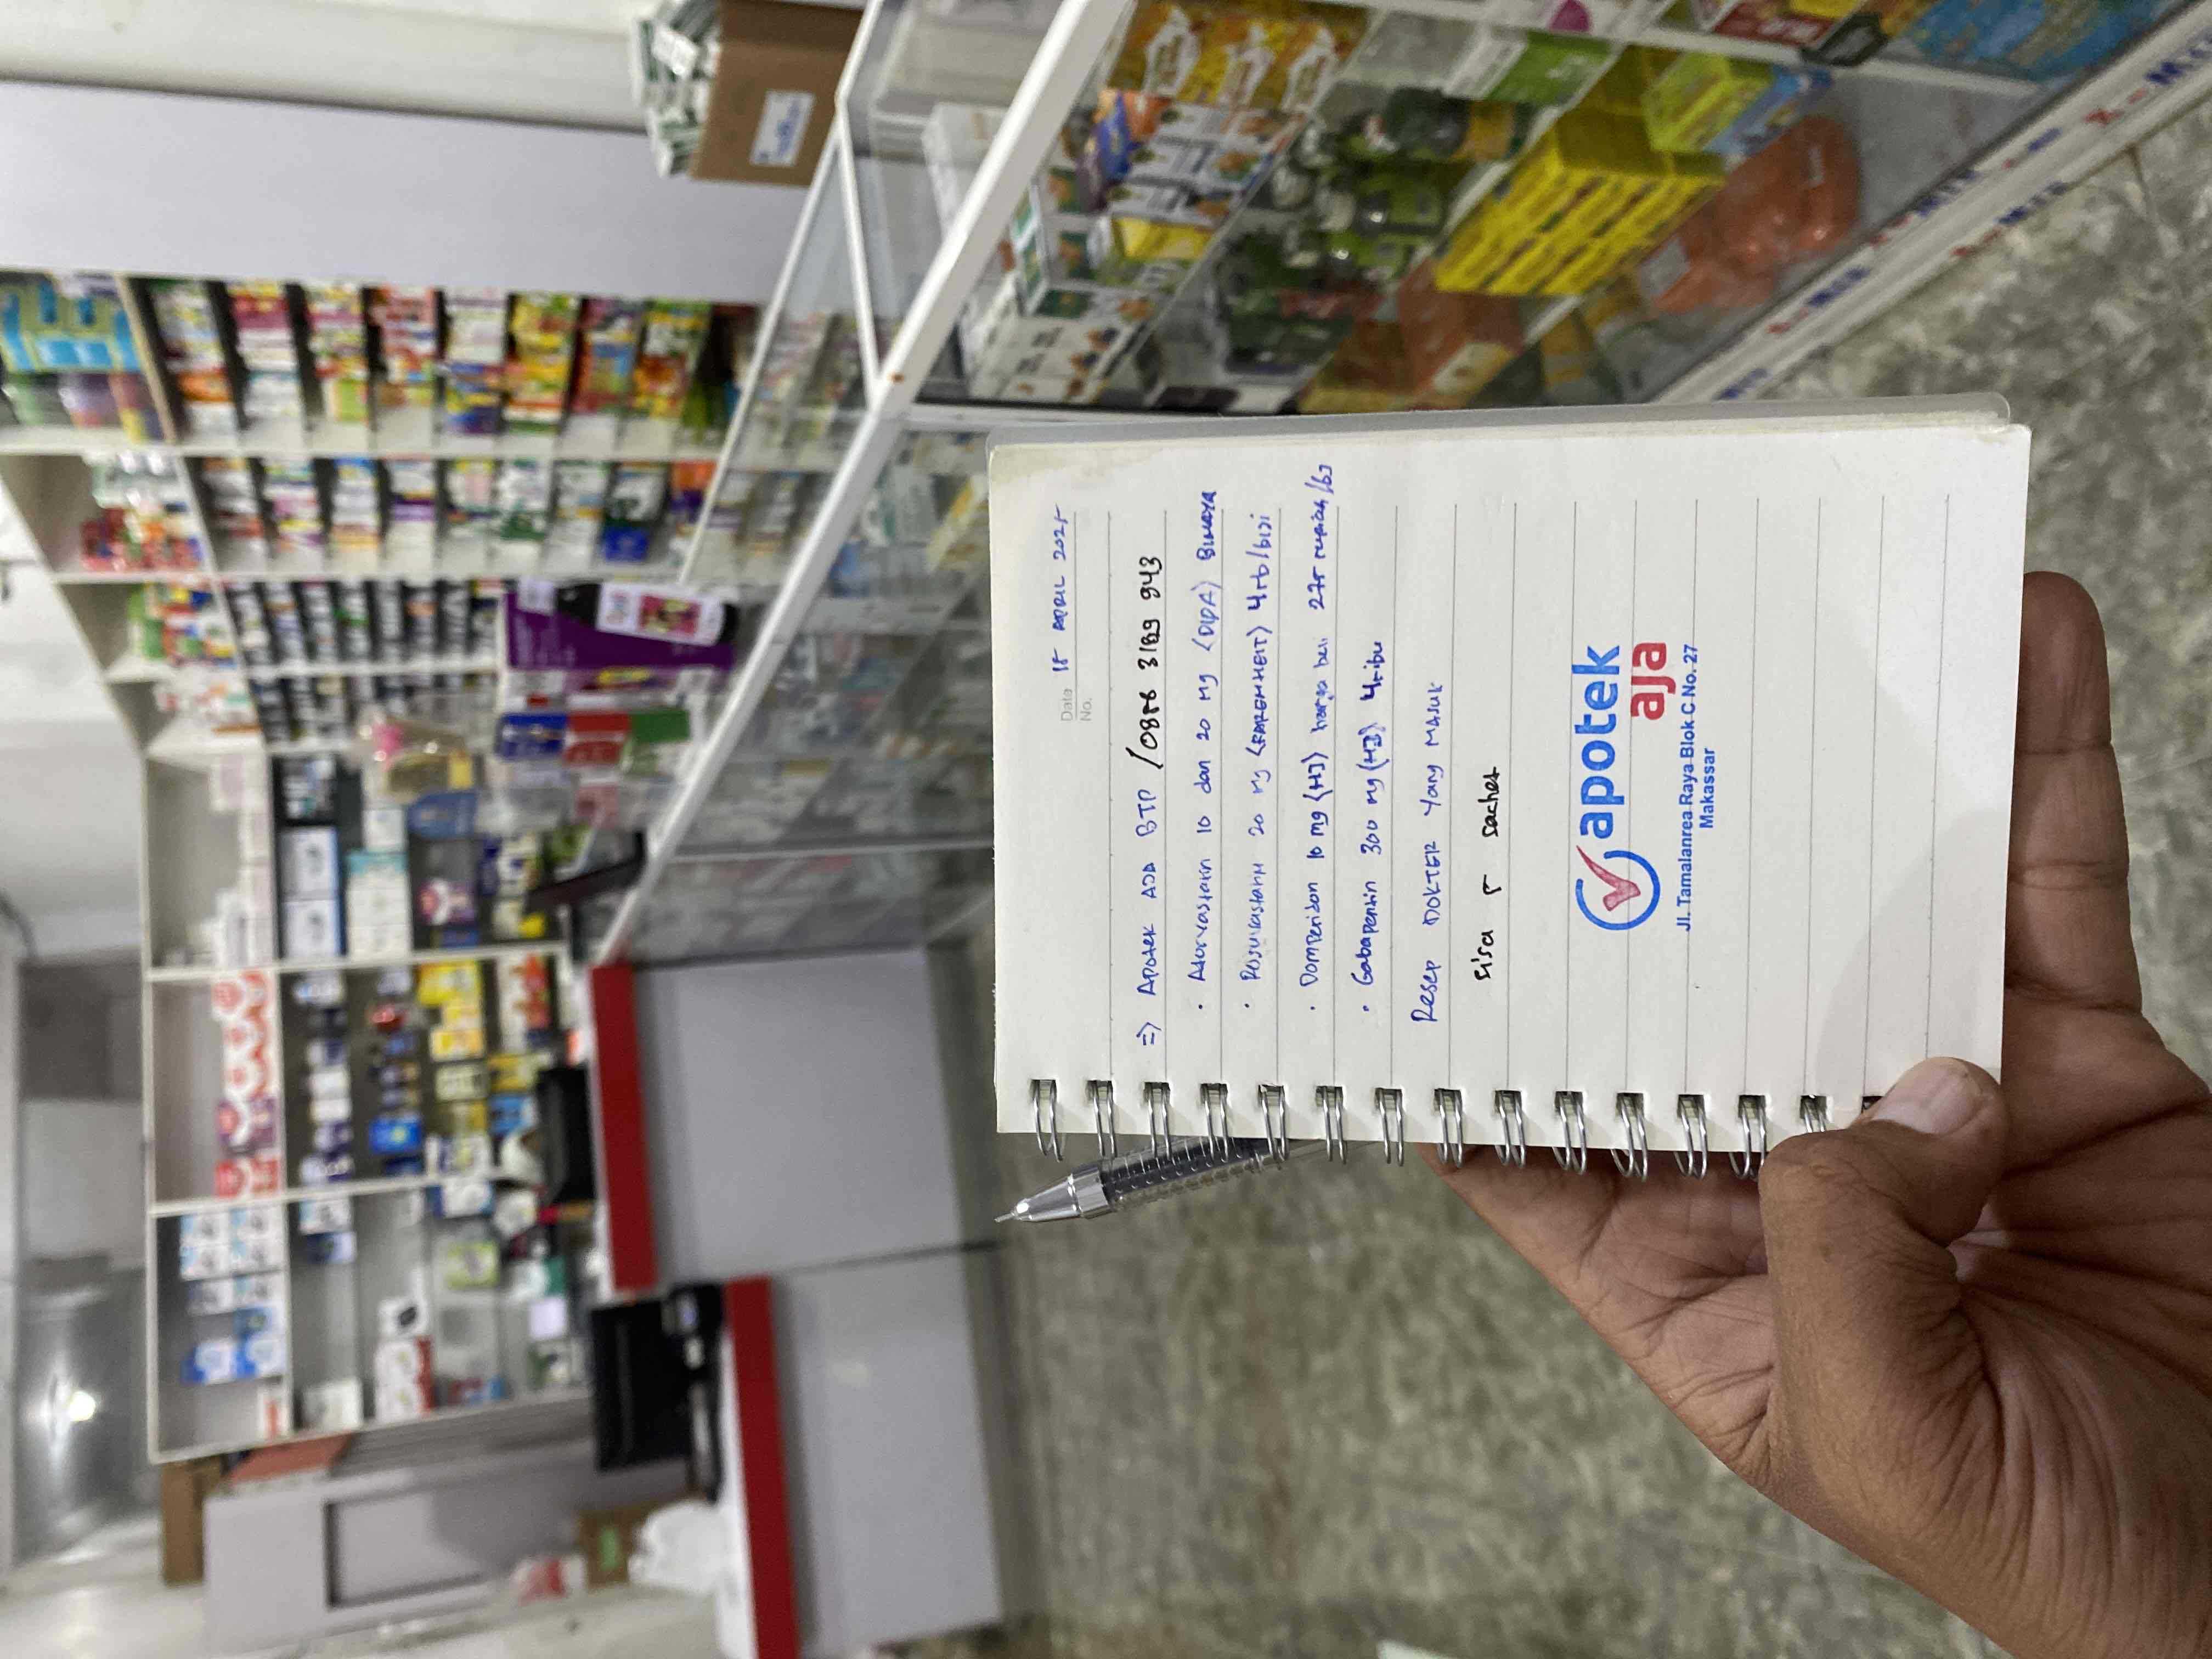 Date 15 APRIL 2025
No.
=> APOTEK AJA BTP / 0858 3189 943
· Atorvastatin 10 dan 20 mg (DIPA) BIMAYA
· Rosuvastatin 20 mg (FARENHEIT) 4rb/biji
· Domperidon 10 mg (HJ) harga beli 275 rupiah/bj
· Gabapentin 300 mg (HJ) 4ribu
Resep DOKTER Yang MASUK
sisa 5 sachet
apotek
aja
Jl. Tamalanrea Raya Blok C.No. 27
Makassar